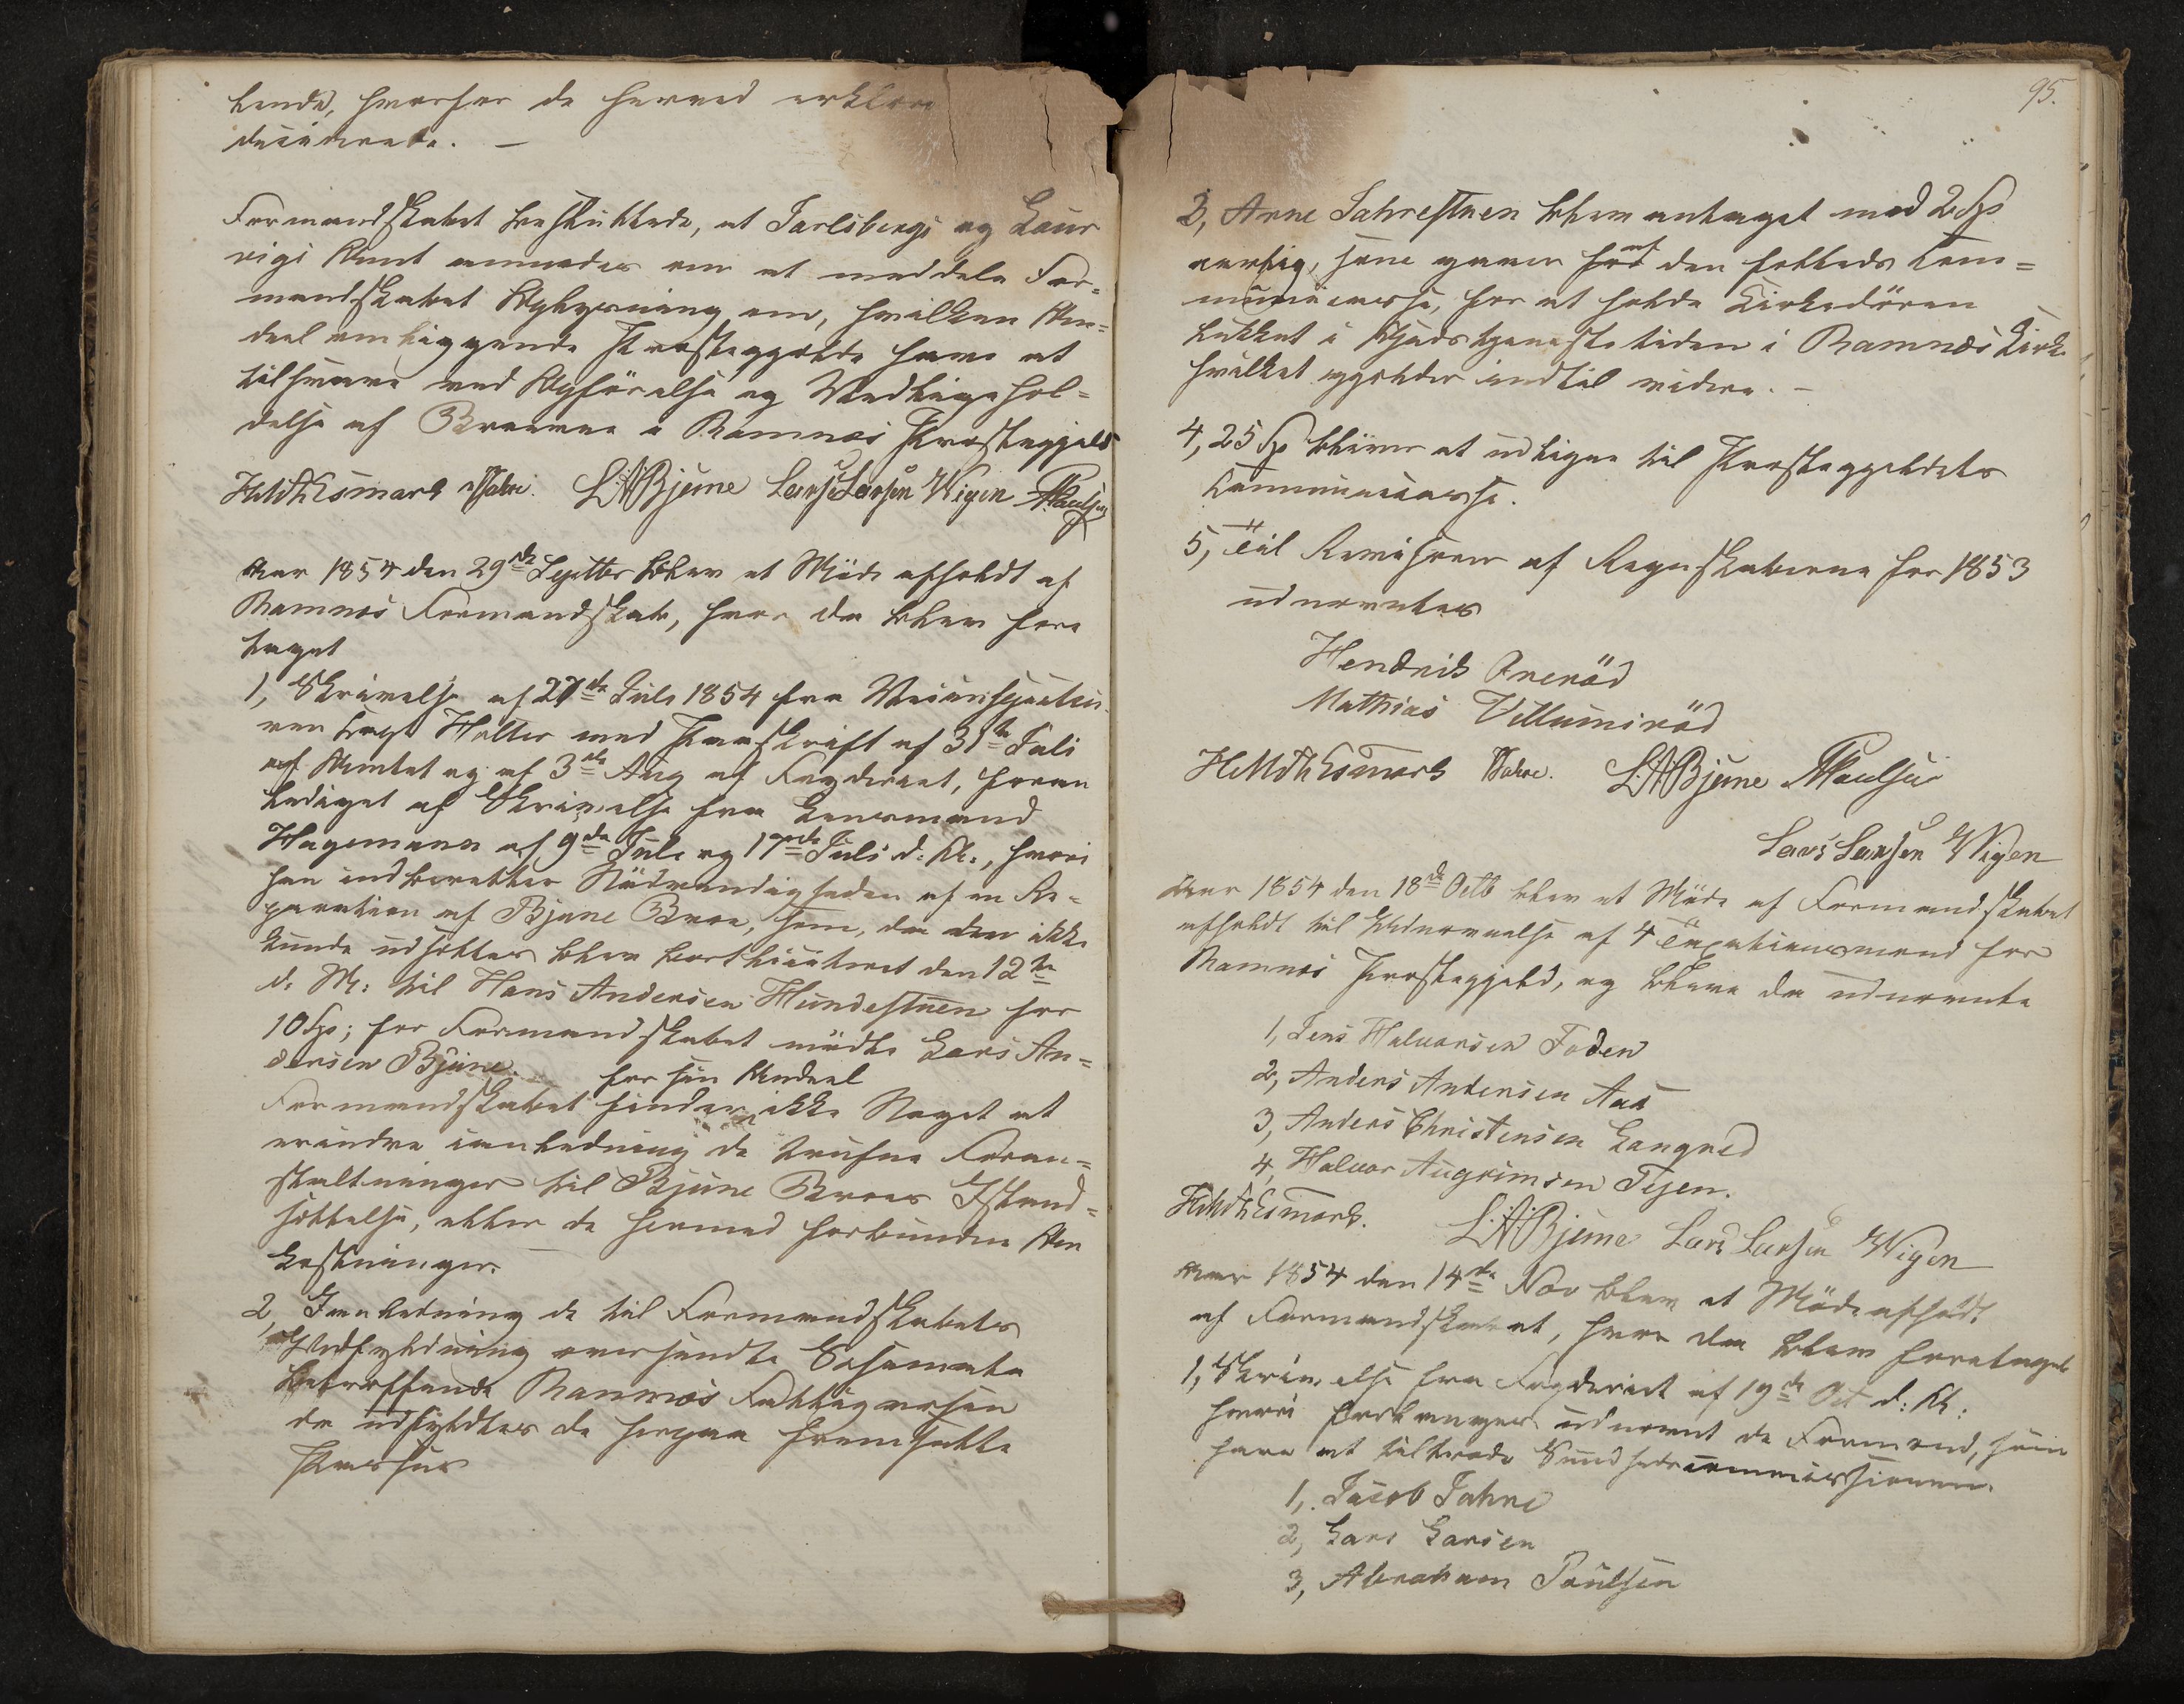 kende, hvorfor de herved erklære
deciderede. —
Formandskabet besluttede, at Jarlsbergs og Laur
vigs Amt anmodes om at meddele For=
mandskabet Oplysning om, hvilken An=
deel omliggende Præstegjelde have at
tilsvare ved Opförelse og Vedligehol=
delse af Broerne i Ramnæs Præstegjeld
HMThEsmark JSahre. LABjune Lars Larsen Wigen APaulsen
Aar 1854 den 29de Septbr blev et Möde afholdt af
Ramnæs Formandskab, hvor da blev fore
taget
1, Skrivelse af 27de Juli 1854 fra Veiinspecteu-
ren Capt Holter med Paaskrift af 31te Juli
af Amtet og af 3de Aug af Fogderiet, foran
lediget af Skrivelse fra Lensmand
Hagemann af 9de Juli og 17de Juli d: A:, hvori
han indberetter Nödvendigheden af en Re=
paration af Bjune Broe, som, da den ikke
kunde udsættes blev bortliciteret den 12te
d: M: til Hans Andersen Hundestuen for
10 Sp; for Formandskabet mödte Lars An=
dersen Bjune. for sin Andeel
Formandskabet finder ikke Noget at
erindre i Anledning de trufne Foran=
staltninger til Bjune Broes Istand=
sættelse, eller de hermed forbundne Om
kostninger.
2, I Anledning de til Formandskabets
Udfyldning oversendte Schemata
betræffende Ramnæs Fattigvæsen
da udfyldtes de herpaa fremsatte
Poster
95.
3, Arne Sahrestuen blev antaget med 2 Sp
aarlig, som gaaer af den fælleds Com=
municasse, for at holde Kirkedören
lukket i Gudstjenestetiden i Ramnæs Kirke
hvilket gjelder indtil videre. —
4, 25 Sp bliver at udligne til Præstegjeldets
Communecasse.
5, Til Revisorer af Regnskaberne for 1853
udnævntes
Hendrik Orerød
Mathias Villumsröd
HMThEsmark JSahre. LABjune APaulsen
Lars Larsen Wigen
Aar 1854 den 18de Octb blev et Möde af Formandskabet
afholdt til Udnævnelse af 4 Taxationsmænd for
Ramnæs Præstegjeld, og bleve da udnævnte
1, Jens Halvorsen Foden
2, Anders Andersen Aas
3, Anders Christensen Langrød
4, Halvor Augrimsen Tejen.
HMThEsmark. L:A:Bjune Lars Larsen Wigen
Aar 1854 den 14de Nov blev et Möde afholdt
af Formandskabet, hvor da blev foretaget
1, Skrivelse fra Fogderiet af 19de Oct d: A:
hvori forlanges udnævnt de Formænd, som
have at tiltræde Sundhedscommissionen.
1, Jacob Sahre
2, Lars Larsen
3, Abraham Paulsen